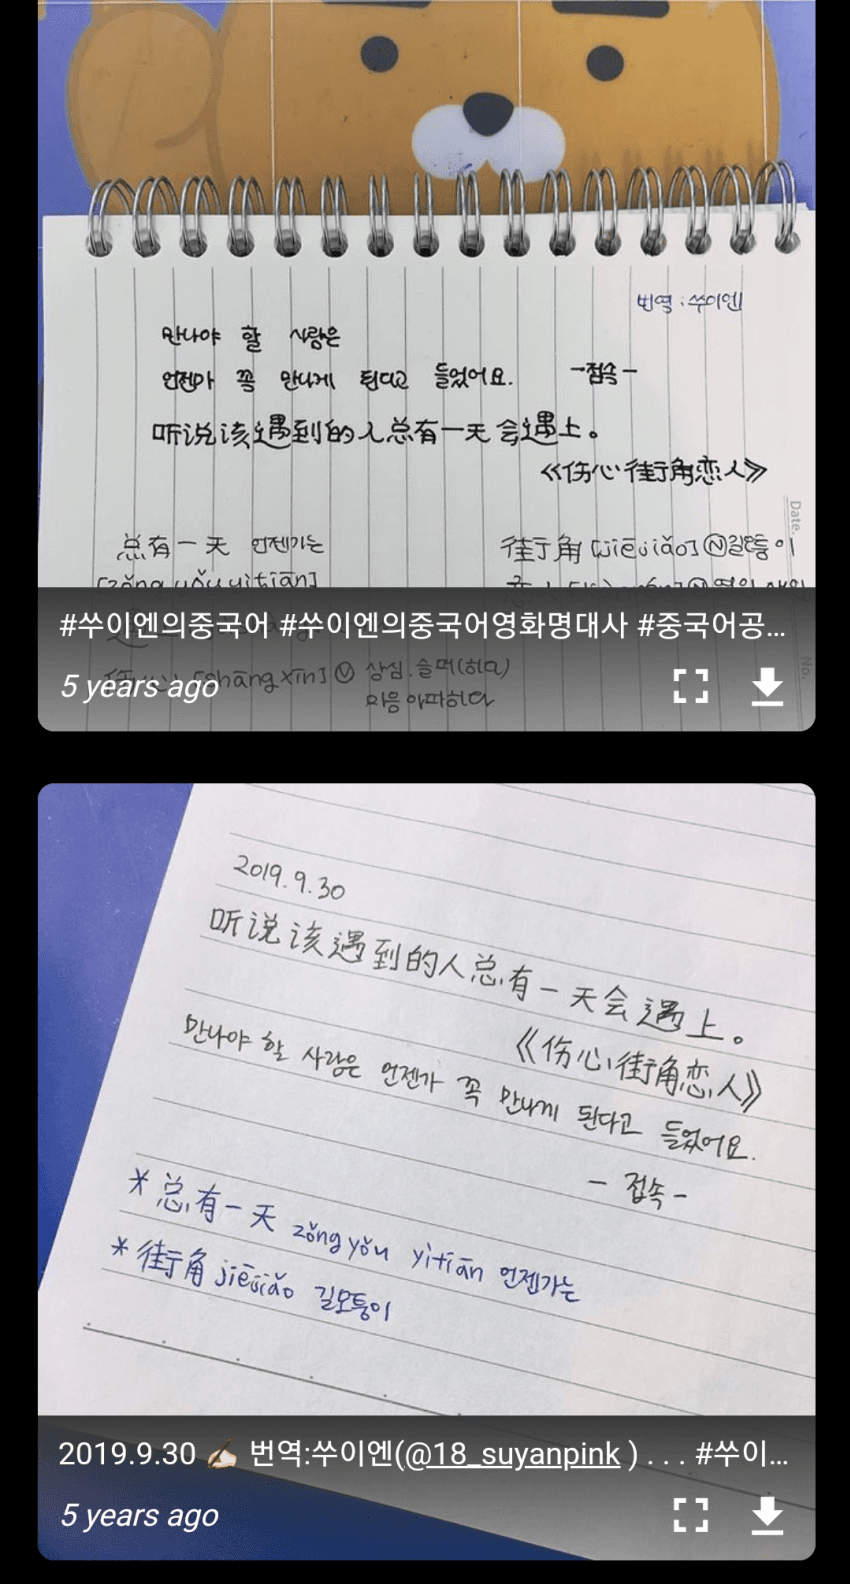 번역 : 쑤이엔
만나야 할 사람은
언젠가 꼭 만나게 된다고 들었어요.
-접속-
听说该遇到的人总有一天会遇上。
《伤心街角恋人》
Date.
总有一天 언젠가는
[zǒng yǒu yì tiān]
街角 [jiējiǎo] Ⓝ길모퉁이
#쑤이엔의중국어 #쑤이엔의중국어영화명대사 #중국어공...
伤心 [shāng xīn] Ⓥ 상심. 슬퍼(하다)
마음 아파하다
No.
5 years ago
2019.9.30
听说该遇到的人总有一天会遇上。
《伤心街角恋人》
만나야 할 사람은 언젠가 꼭 만나게 된다고 들었어요.
- 접속 -
* 总有一天 zǒng yǒu yìtiān 언젠가는
* 街角 jiējiǎo 길모퉁이
2019.9.30 ✍🏻 번역:쑤이엔(@18_suyanpink ) . . . #쑤이...
5 years ago